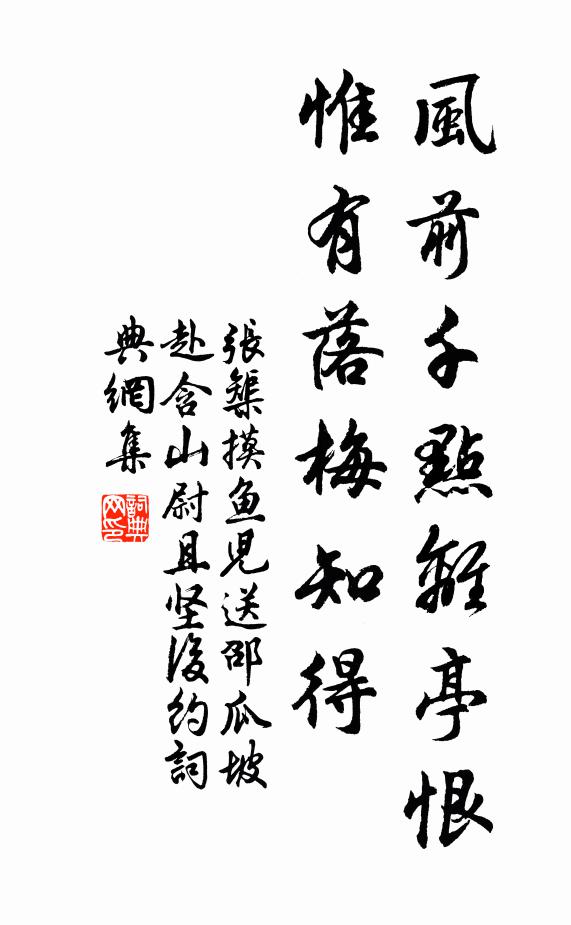 風前千點離亭恨
惟有落梅知得
張榘摸魚兒送邵瓜坡
赴含山尉且坚後約詞
典網集
詞典
网印